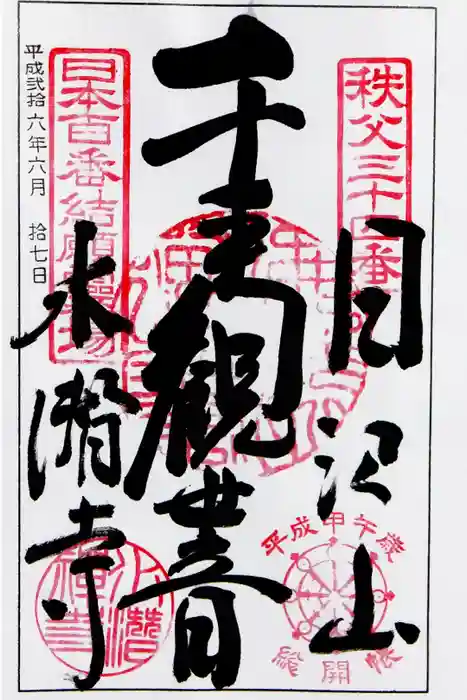 秩父三十四番
日沢山
千手観世音
日本百番結願霊場
水潜寺
平成弐拾六年六月 拾七日
平成甲午歳
総開帳
水潜禅寺